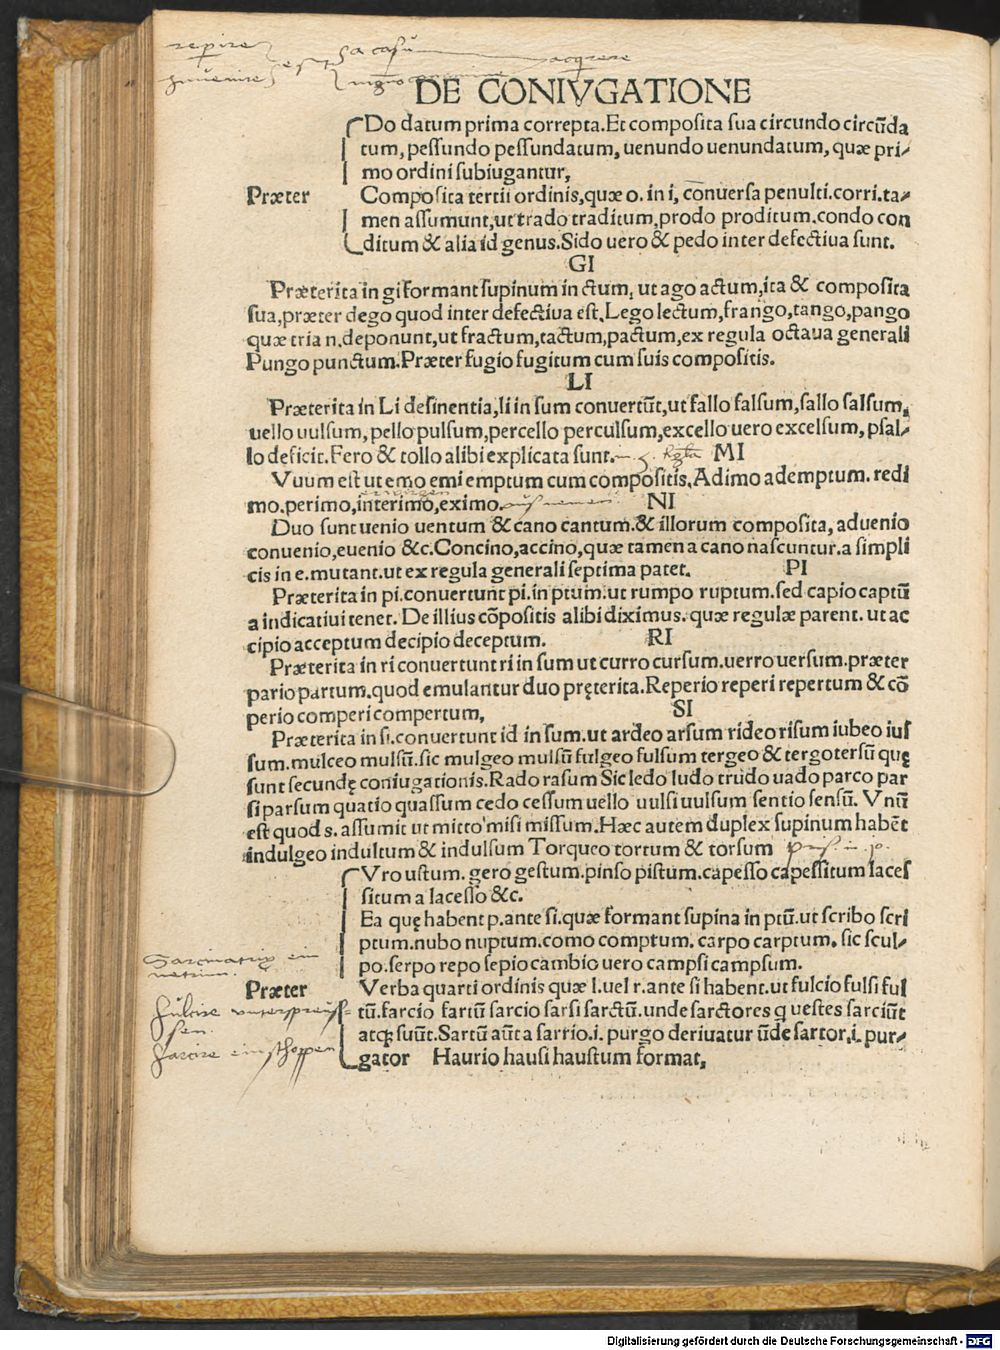 repire a casu acq̃rere
Inuenire est
DE CONIVGATIONE
Do datum prima correpta.Et composita sua circundo circũda
tum, pessundo pessundatum, uenundo uenundatum, quæ pri-
mo ordini subiugantur,
Præter Composita tertii ordinis,quæ o. in i, conuersa penulti.corri.ta-
men assumunt,ut trado traditum,prodo proditum.condo con
ditum & alia id genus.Sido uero & pedo inter defectiua sunt.
GI
Præterita in gi formant supinum in ctum, ut ago actum,ita & composita
sua,præter dego quod inter defectiua est.Lego lectum,frango,tango,pango
quæ tria n.deponunt,ut fractum,tactum,pactum,ex regula octaua generali
Pungo punctum.Præter fugio fugitum cum suis compositis.
LI
Præterita in Li desinentia,li in sum conuertũt,ut fallo falsum,sallo salsum,
uello uulsum, pello pulsum,percello perculsum,excello uero excelsum, psal-
lo deficit.Fero & tollo alibi explicata sunt. MI
Vuum est ut emo emi emptum cum compositis.Adimo ademptum. redi
mo.perimo,interimo,eximo. NI
Duo sunt uenio uentum & cano cantum.& illorum composita, aduenio
conuenio,euenio &c.Concino,accino,quæ tamen a cano nascuntur.a simpli
cis in e.mutant.ut ex regula generali septima patet. PI
Præterita in pi.conuertunt pi.in ptum.ut rumpo ruptum.sed capio captũ
a indicatiui tenet. De illius cõpositis alibi diximus. quæ regulæ parent. ut ac
cipio acceptum decipio deceptum. RI
Præterita in ri conuertunt ri in sum ut curro cursum.uerro uersum.præter
pario partum.quod emulantur duo pręterita.Reperio reperi repertum & cõ
perio comperi compertum, SI
Præterita in si.conuertunt id in sum.ut ardeo arsum rideo risum iubeo ius
sum.mulceo mulsũ.sic mulgeo mulsũ fulgeo fulsum tergeo & tergo tersũ quę
sunt secundę coniugationis.Rado rasum Sic ledo ludo trudo uado parco par
si parsum quatio quassum cedo cessum uello uulsi uulsum sentio sensũ. Vnũ
est quod s. assumit ut mitto misi missum.Hæc autem duplex supinum habẽt
indulgeo indultum & indulsum Torqueo tortum & torsum
Vro ustum. gero gestum.pinso pistum.capesso capessitum laces
situm a lacesso &c.
Ea quę habent p.ante si.quæ formant supina in ptũ.ut scribo scri
ptum.nubo nuptum.como comptum. carpo carptum. sic scul-
po.serpo repo sepio cambio uero campsi campsum.
Sarcinatrix ein
Præter Verba quarti ordinis quæ l.uel r.ante si habent.ut fulcio fulsi ful
tũ.farcio fartũ sarcio sarsi sarctũ.unde sarctores q uestes sarciũt
atq; suũt.Sartũ aũt a sarrio.i. purgo deriuatur ũde sartor.i. pur-
gator Haurio hausi haustum format,
fulcire
sen.
farcire ein
Digitalisierung gefördert durch die Deutsche Forschungsgemeinschaft - DFG